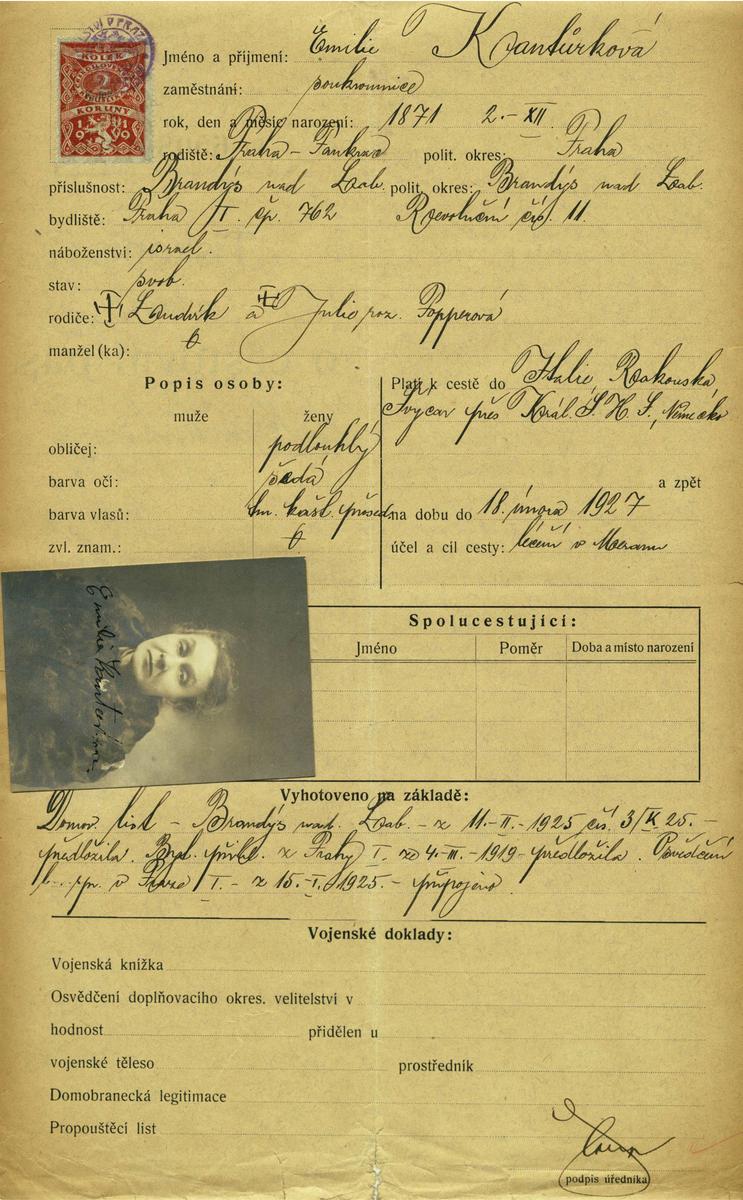 KOLEK
2
KORUNY
1919
Jméno a příjmení: Emilie Kantůrková
zaměstnání: soukromnice
rok, den a měsíc narození: 1871 2.- XII
rodiště: Praha - Pankrac polit. okres: Praha
příslušnost: Brandýs nad Lab. polit. okres: Brandýs nad Lab.
bydliště: Praha II. čp. 762 Revoluční čís. 11.
náboženství: israel.
stav: svob.
rodiče: Ludvík a Julie roz. Popperová
manžel (ka):
Popis osoby:
muže ženy
obličej: podlouhlý
barva očí: šedá
barva vlasů: tm. kašt. prošed.
zvl. znam.:
Platí k cestě do Italie, Rakouska,
Švýcar přes Král. S. H. S., Německo
a zpět
na dobu do 18. února 1927
účel a cíl cesty: léčení v Meranu
Emilie Kantůrková
Spolucestující:
Jméno Poměr Doba a místo narození
Vyhotoveno na základě:
Domov. list - Brandýs nad Lab. - z 11.-II.-1925 čís. 3/ 25.-
předložila. Byt. přihl. z Prahy I. ze 4.-III.-1919 - předložila. Osvědčení
v Praze I. - z 15.-I. 1925.- připojeno.
Vojenské doklady:
Vojenská knížka
Osvědčení doplňovacího okres. velitelství v
hodnost přidělen u
vojenské těleso prostředník
Domobranecká legitimace
Propouštěcí list
podpis úředníka